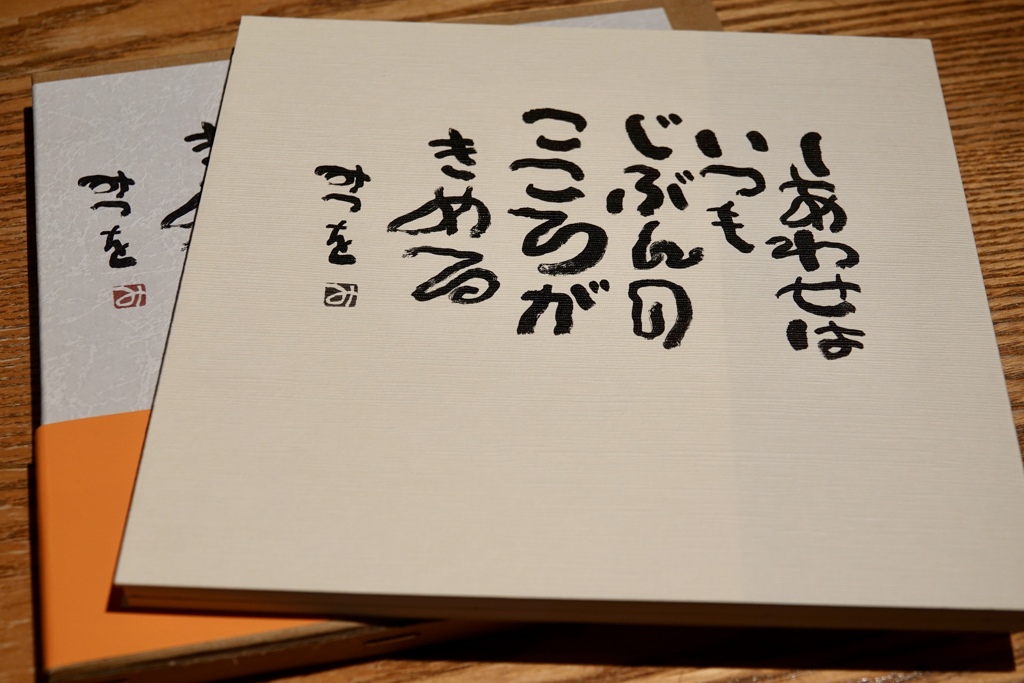 しあわせは
いつも
じぶんの
こころが
きめる
みつを
き
みつを